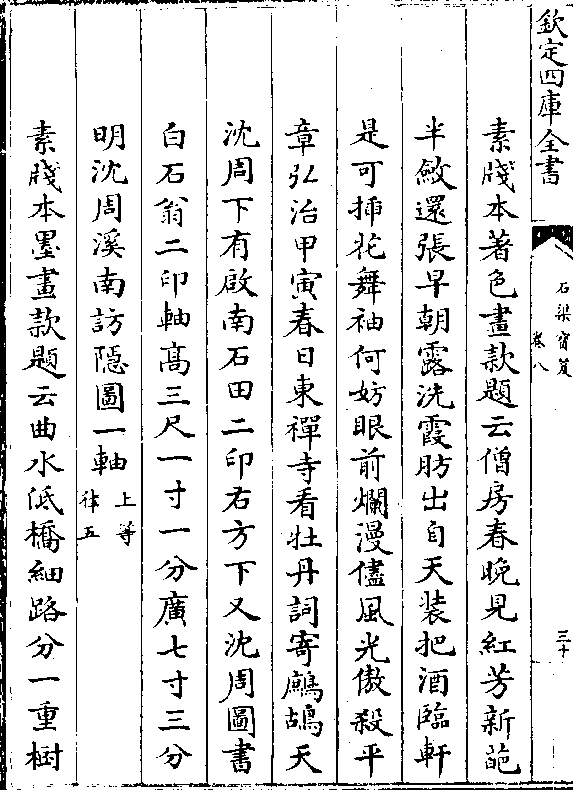 欽定四庫全書
石渠寳笈
卷八
三十
素牋本著色畫款題云僧房春晚見紅芳新葩
半斂還張早朝露洗霞肪出自天装把酒臨軒
是可揷花舞袖何妨眼前爛漫儘風光傲殺平
章弘治甲寅春日東禪寺看牡丹詞寄鷓鴣天
沈周下有啟南石田二印右方下又沈周圖書
白石翁二印軸髙三尺一寸一分廣七寸三分
明沈周溪南訪隱圖一軸 上等
律五
素牋本墨畫款題云曲水低橋細路分一重樹